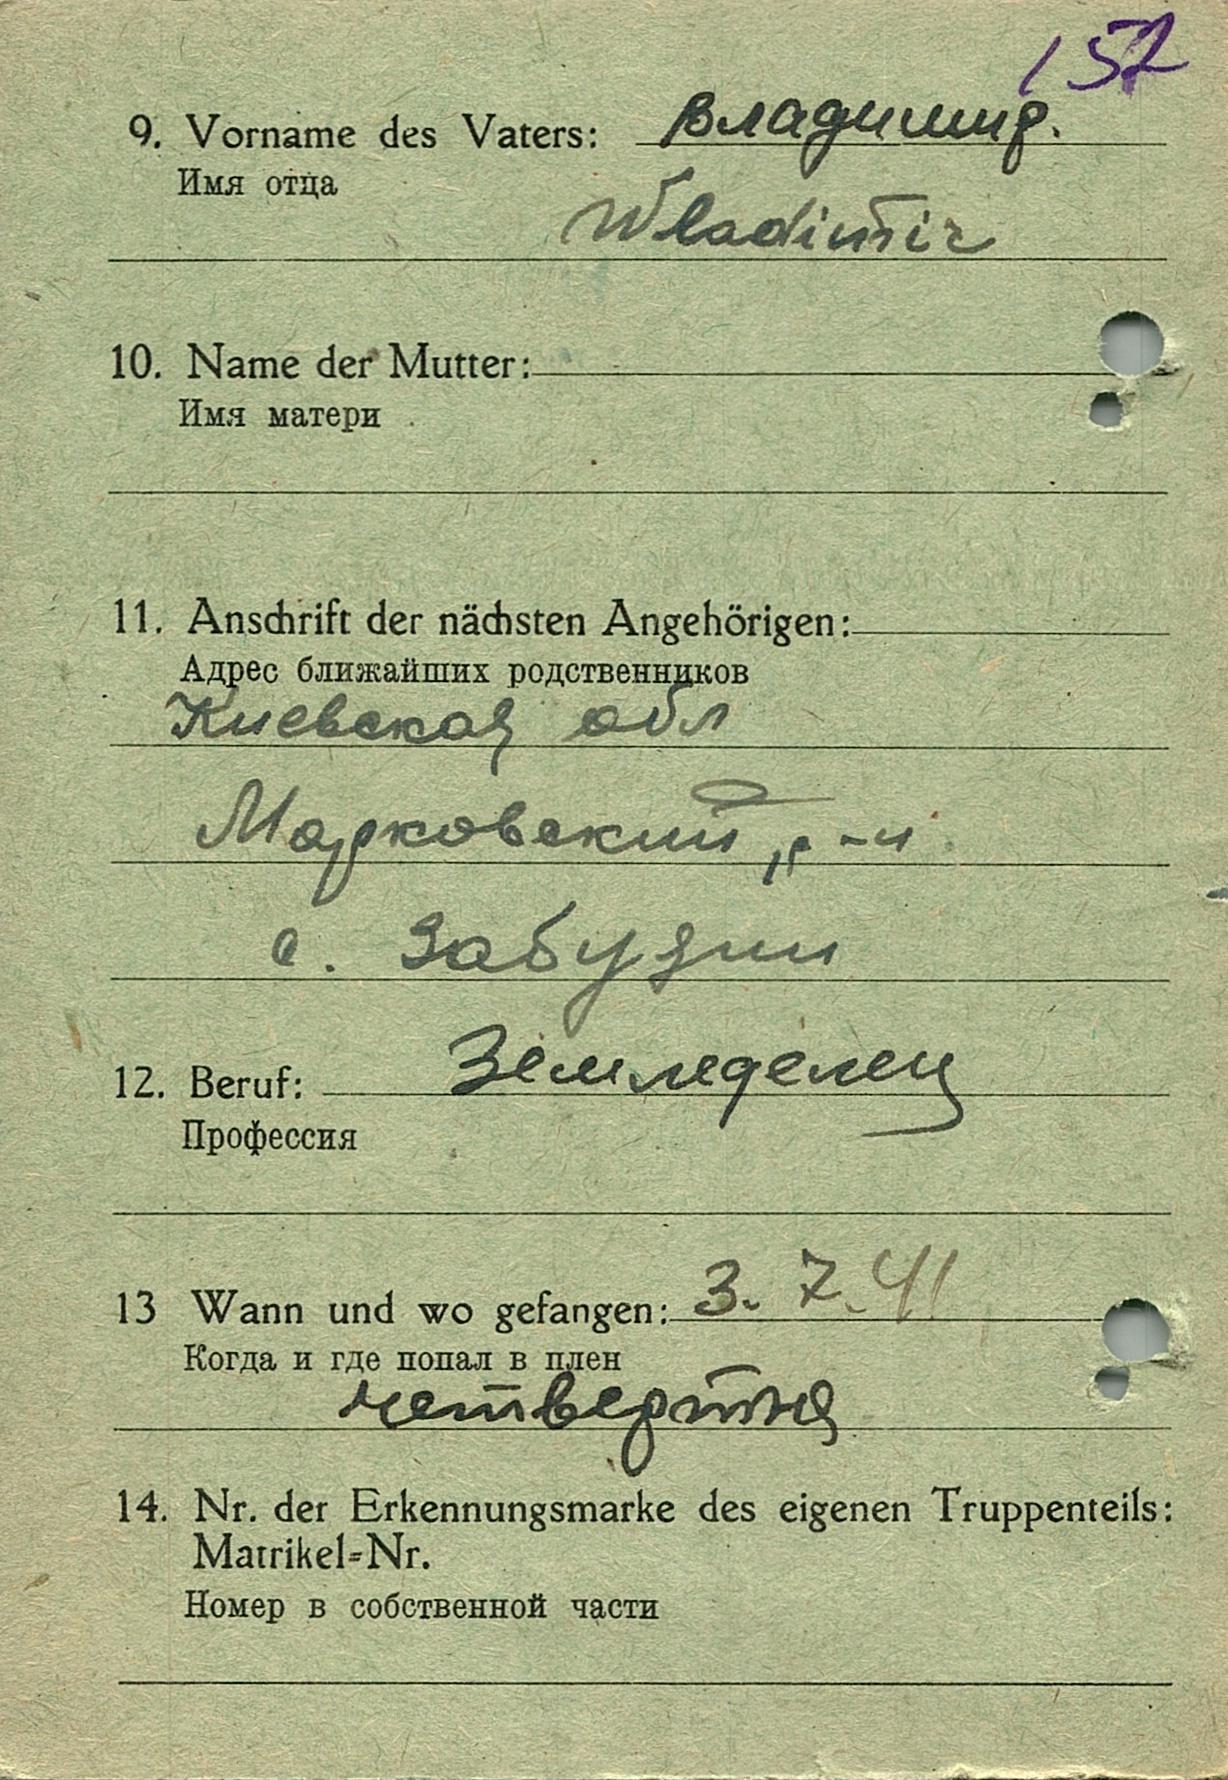 157
9. Vorname des Vaters: Владимир.
Имя отца
Wladimir
10. Name der Mutter:
Имя матери
11. Anschrift der nächsten Angehörigen:
Адрес ближайших родственников
Киевская обл
Марковский р-н
с. Забузин
12. Beruf: Земледелец
Профессия
13 Wann und wo gefangen: 3. 7. 41
Когда и где попал в плен
четвертня
14. Nr. der Erkennungsmarke des eigenen Truppenteils:
Matrikel=Nr.
Номер в собственной части